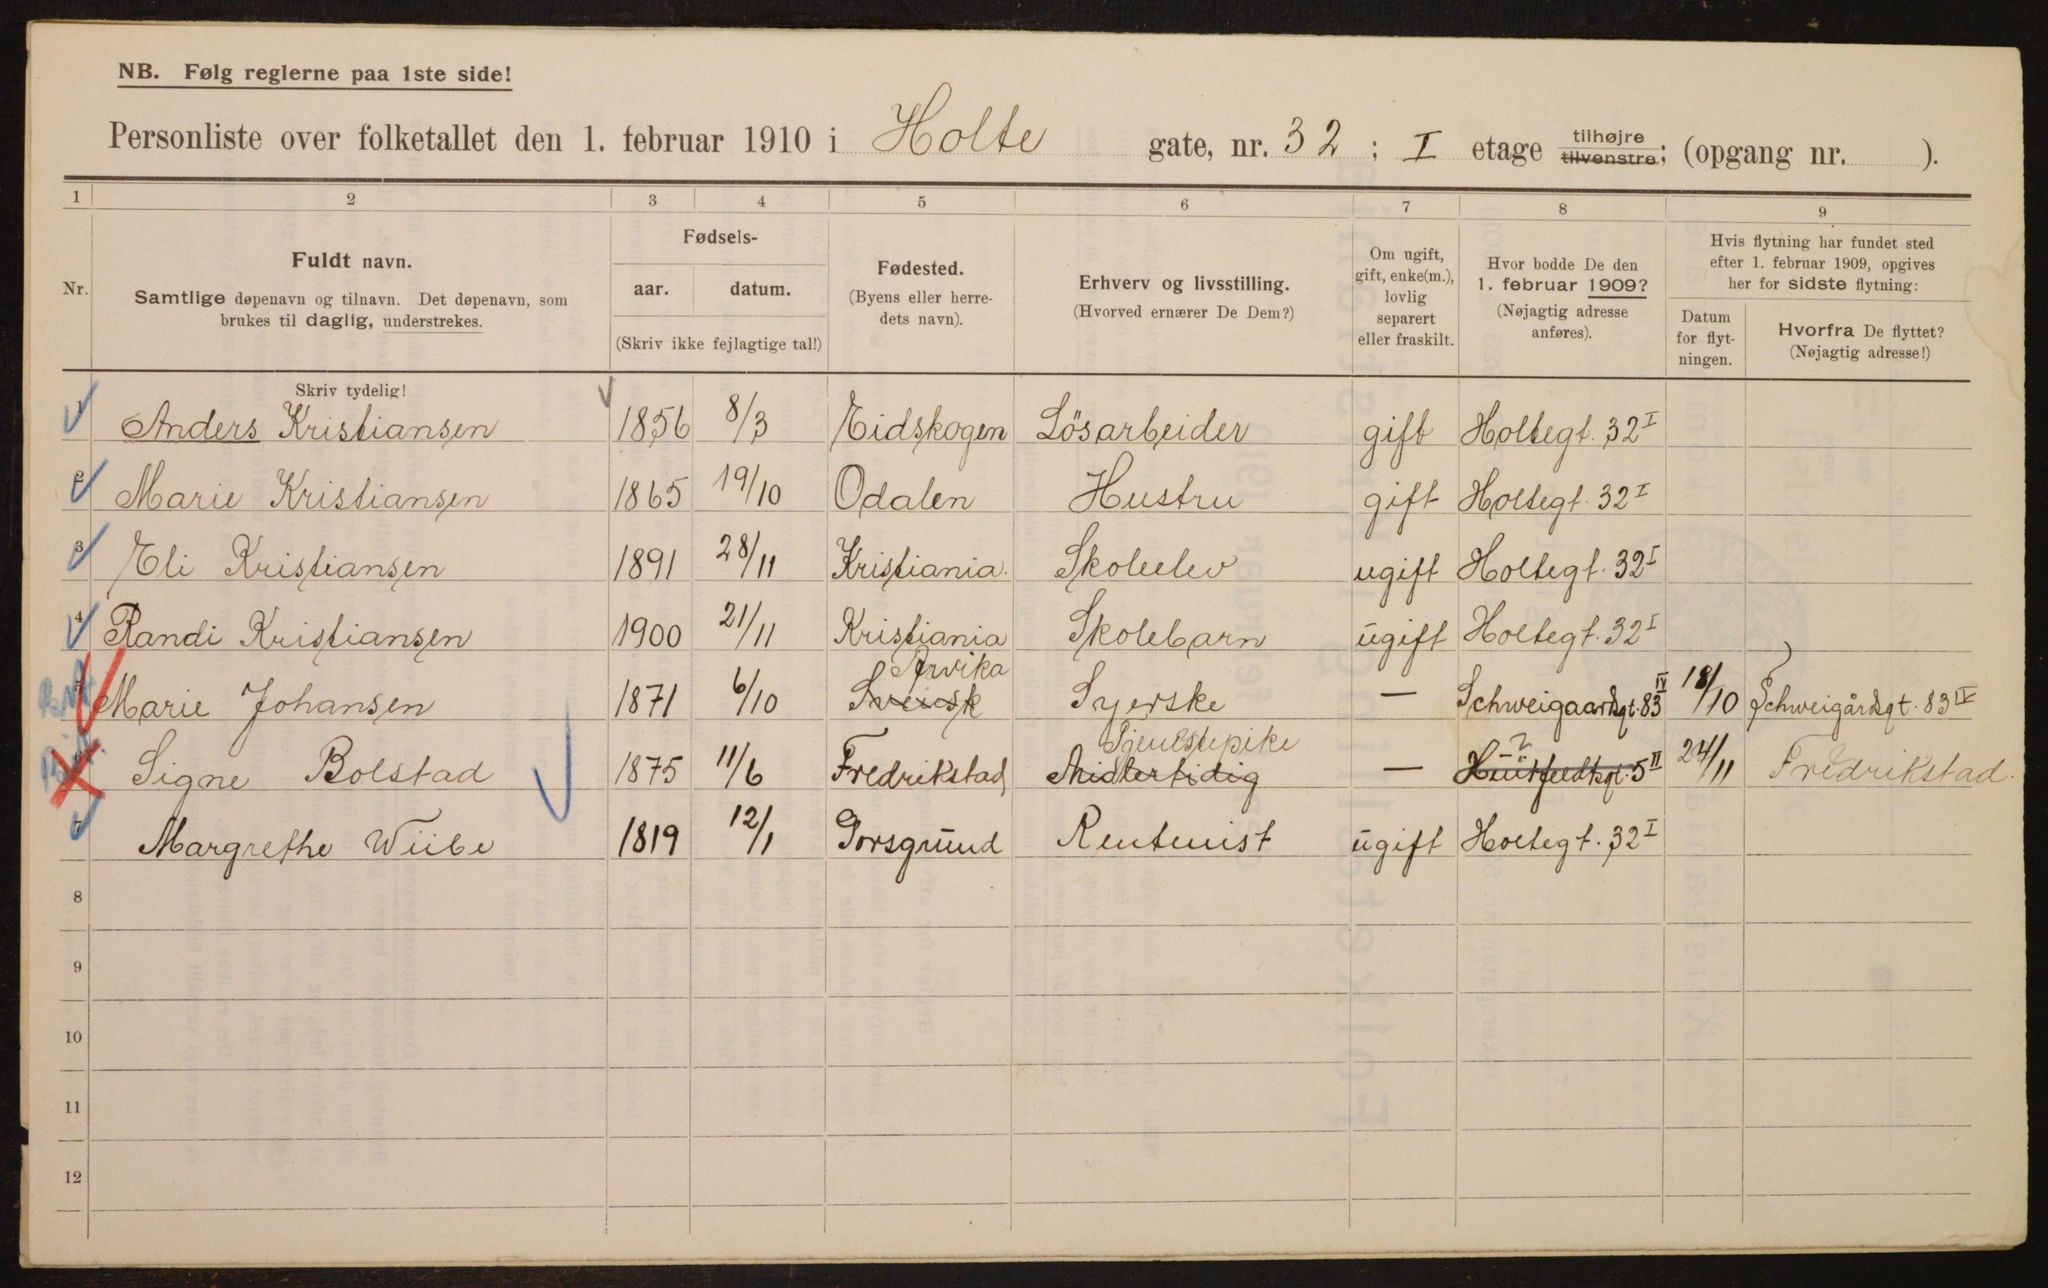 NB. Følg reglerne paa 1ste side!
Personliste over folketallet den 1. februar 1910 i Holte gate, nr. 32 ; I etage tilhøjre tilvenstre; (opgang nr. ).
1 2 3 4 5 6 7 8 9
Nr.
Fuldt navn.
Samtlige døpenavn og tilnavn. Det døpenavn, som
brukes til daglig, understrekes.
Fødsels-
aar. datum.
(Skriv ikke fejlagtige tal!)
Fødested.
(Byens eller herre-
dets navn).
Erhverv og livsstilling.
(Hvorved ernærer De Dem?)
Om ugift,
gift, enke(m.),
lovlig
separert
eller fraskilt.
Hvor bodde De den
1. februar 1909?
(Nøjagtig adresse
anføres).
Hvis flytning har fundet sted
efter 1. februar 1909, opgives
her for sidste flytning:
Datum
for flyt-
ningen.
Hvorfra De flyttet?
(Nøjagtig adresse!)
Skriv tydelig!
1 Anders Kristiansen 1856 8/3 Eidskogen Lösarbeider gift Holtegt. 32 I
2 Marie Kristiansen 1865 19/10 Odalen Hustru gift Holtegt. 32 I
3 Eli Kristiansen 1891 28/11 Kristiania. Skoleelev ugift Holtegt. 32 I
4 Randi Kristiansen 1900 21/11 Kristiania Skolebarn ugift Holtegt. 32 I
Arvika
5 Marie Johansen 1871 6/10 Svensk Syerske — Schweigaardsgt. 83 IV 18/10 Schweigårdsgt. 83 IV
Tjenestepike ?
6 Signe Bolstad 1875 11/6 Fredrikstad Midlertidig — Huitfeldtsgt. 5 II 24/11 Fredrikstad.
7 Margrethe Wiibe 1819 12/1 Porsgrund Rentenist ugift Holtegt. 32 I
8
9
10
11
12